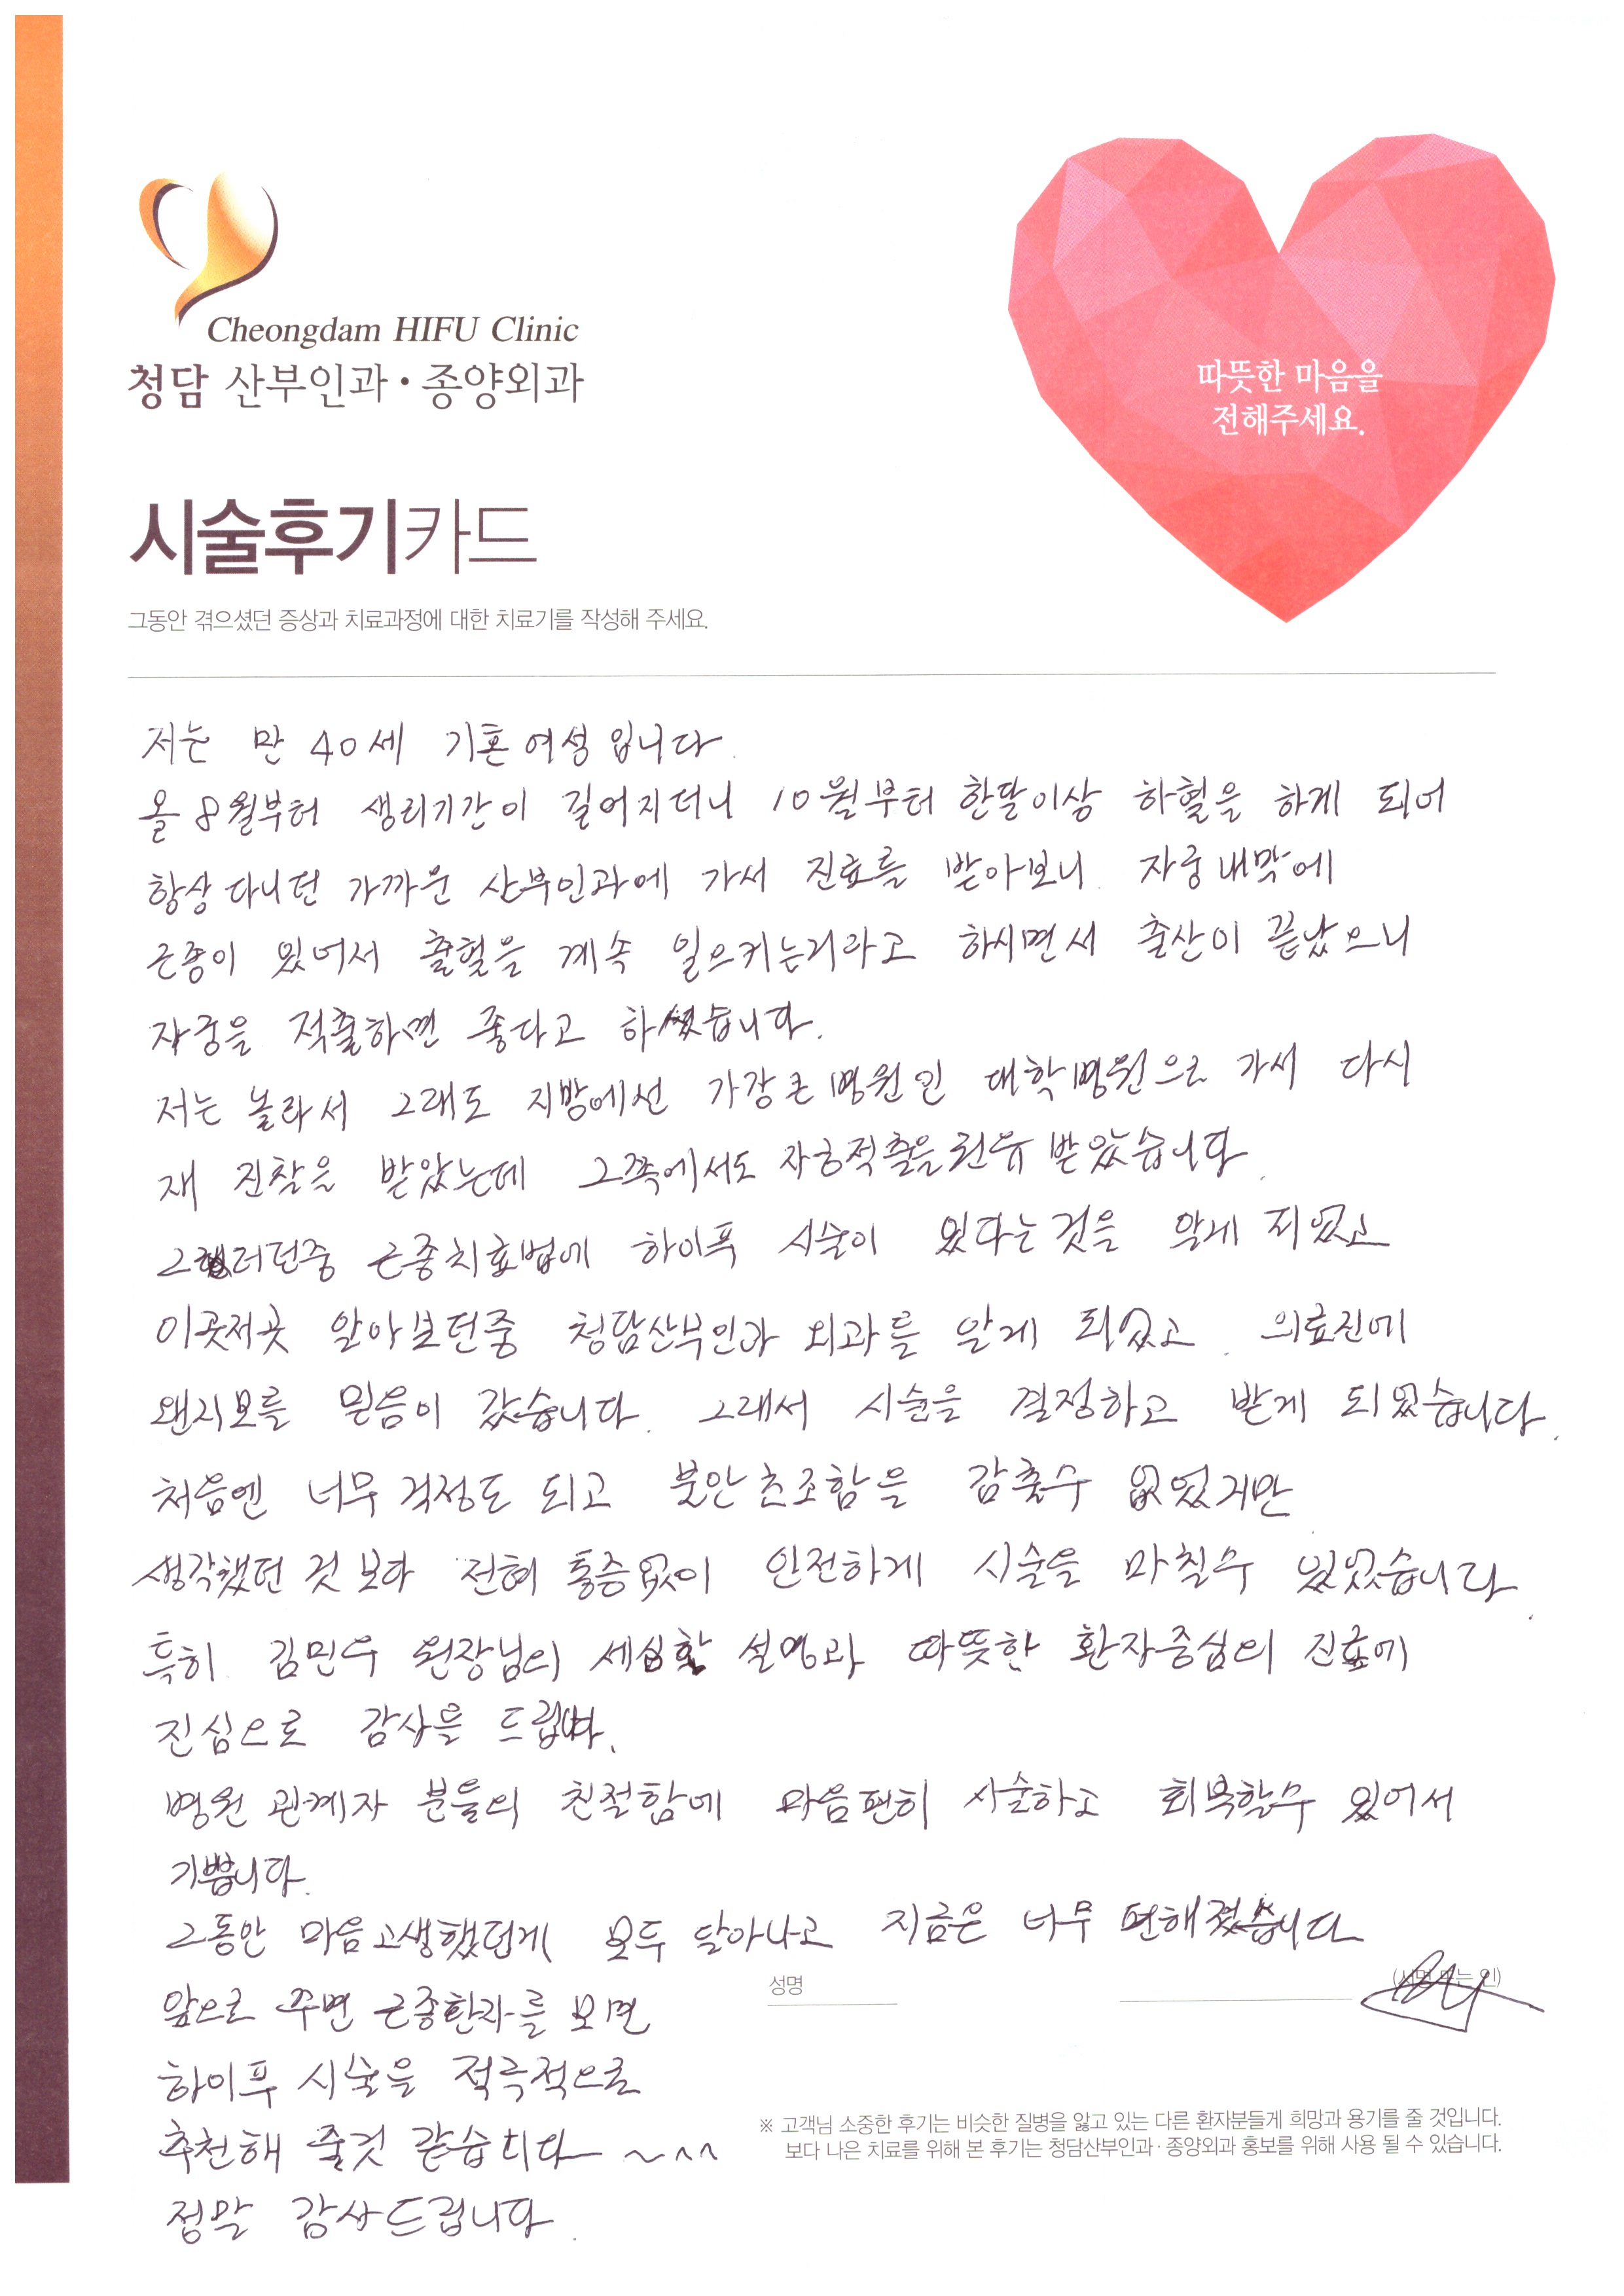 Cheongdam HIFU Clinic
청담 산부인과·종양외과
따뜻한 마음을
전해주세요.
시술후기카드
그동안 겪으셨던 증상과 치료과정에 대한 치료기를 작성해 주세요.
저는 만 40세 기혼여성입니다.
올 8월부터 생리기간이 길어지더니 10월부터 한달이상 하혈을 하게 되어
항상 다니던 가까운 산부인과에 가서 진료를 받아보니 자궁내막에
근종이 있어서 출혈을 계속 일으키는거라고 하시면서 출산이 끝났으니
자궁을 적출하면 좋다고 하셨습니다.
저는 놀라서 그래도 지방에선 가장큰병원인 대학병원으로 가서 다시
재 진찰을 받았는데 그쪽에서도 자궁적출을 권유 받았습니다.
그러던중 근종치료법에 하이푸 시술이 있다는것을 알게 되었고
이곳저곳 알아보던중 청담산부인과 외과를 알게 되었고. 의료진에
왠지모를 믿음이 갔습니다. 그래서 시술을 결정하고 받게 되었습니다.
처음엔 너무 걱정도 되고 불안초조함을 감출수 없었지만
생각했던 것보다 전혀 통증없이 안전하게 시술을 마칠수 있었습니다.
특히 김민우 원장님의 세심한 설명과 따뜻한 환자중심의 진료에
진심으로 감사를 드립니다.
병원 관계자 분들의 친절함에 마음편히 시술하고 회복할수 있어서
기쁩니다.
그동안 마음고생했던게 모두 달아나고 지금은 너무 편해졌습니다
앞으로 주변 근종환자를 보면
하이푸 시술을 적극적으로
추천해 줄것 같습니다~^^
정말 감사드립니다.
성명 (서명 또는 인)
※ 고객님 소중한 후기는 비슷한 질병을 앓고 있는 다른 환자분들게 희망과 용기를 줄 것입니다.
보다 나은 치료를 위해 본 후기는 청담산부인과·종양외과 홍보를 위해 사용 될 수 있습니다.